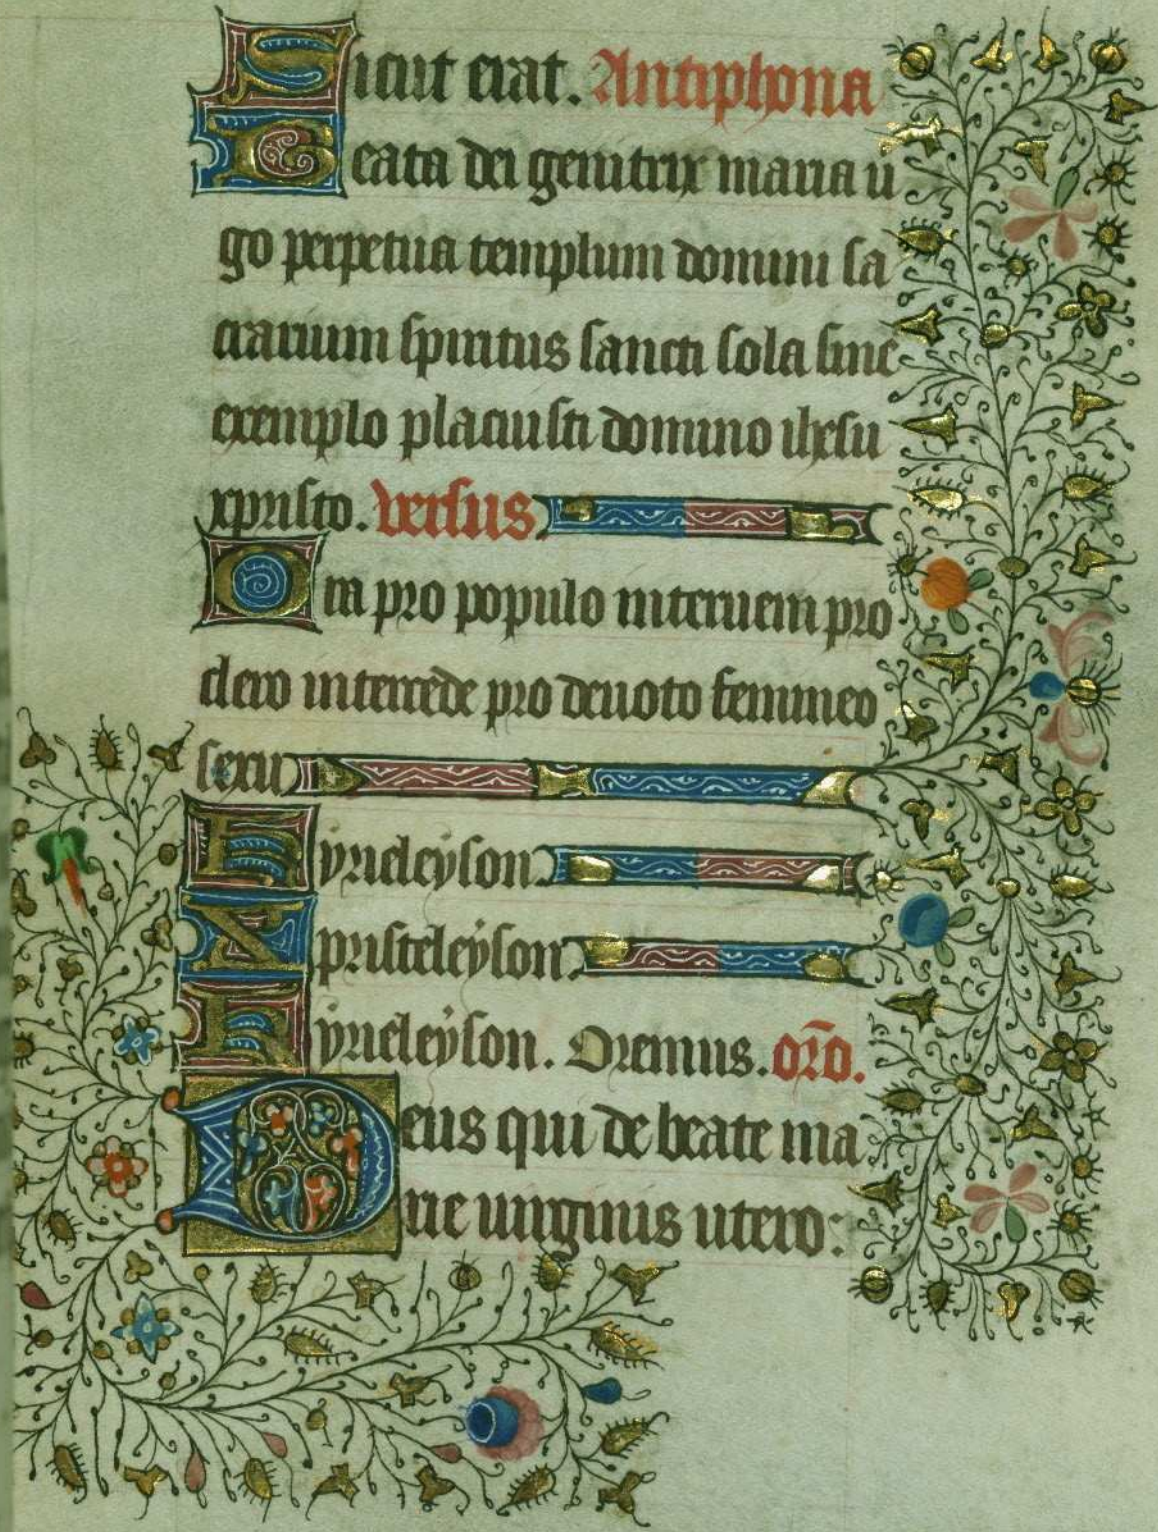 Sicut erat. Antiphona
Beata dei genitrix maria ui
go perpetua templum domini sa
crarium spiritus sancti sola sine
exemplo placuisti domino ihesu
xpristo. versus
Ora pro populo interueni pro
clero intercede pro deuoto femineo
sexu
Kyrieleyson
Xpristeleyson
Kyrieleyson. Oremus. oro.
Deus qui de beate ma
rie uirginis utero: